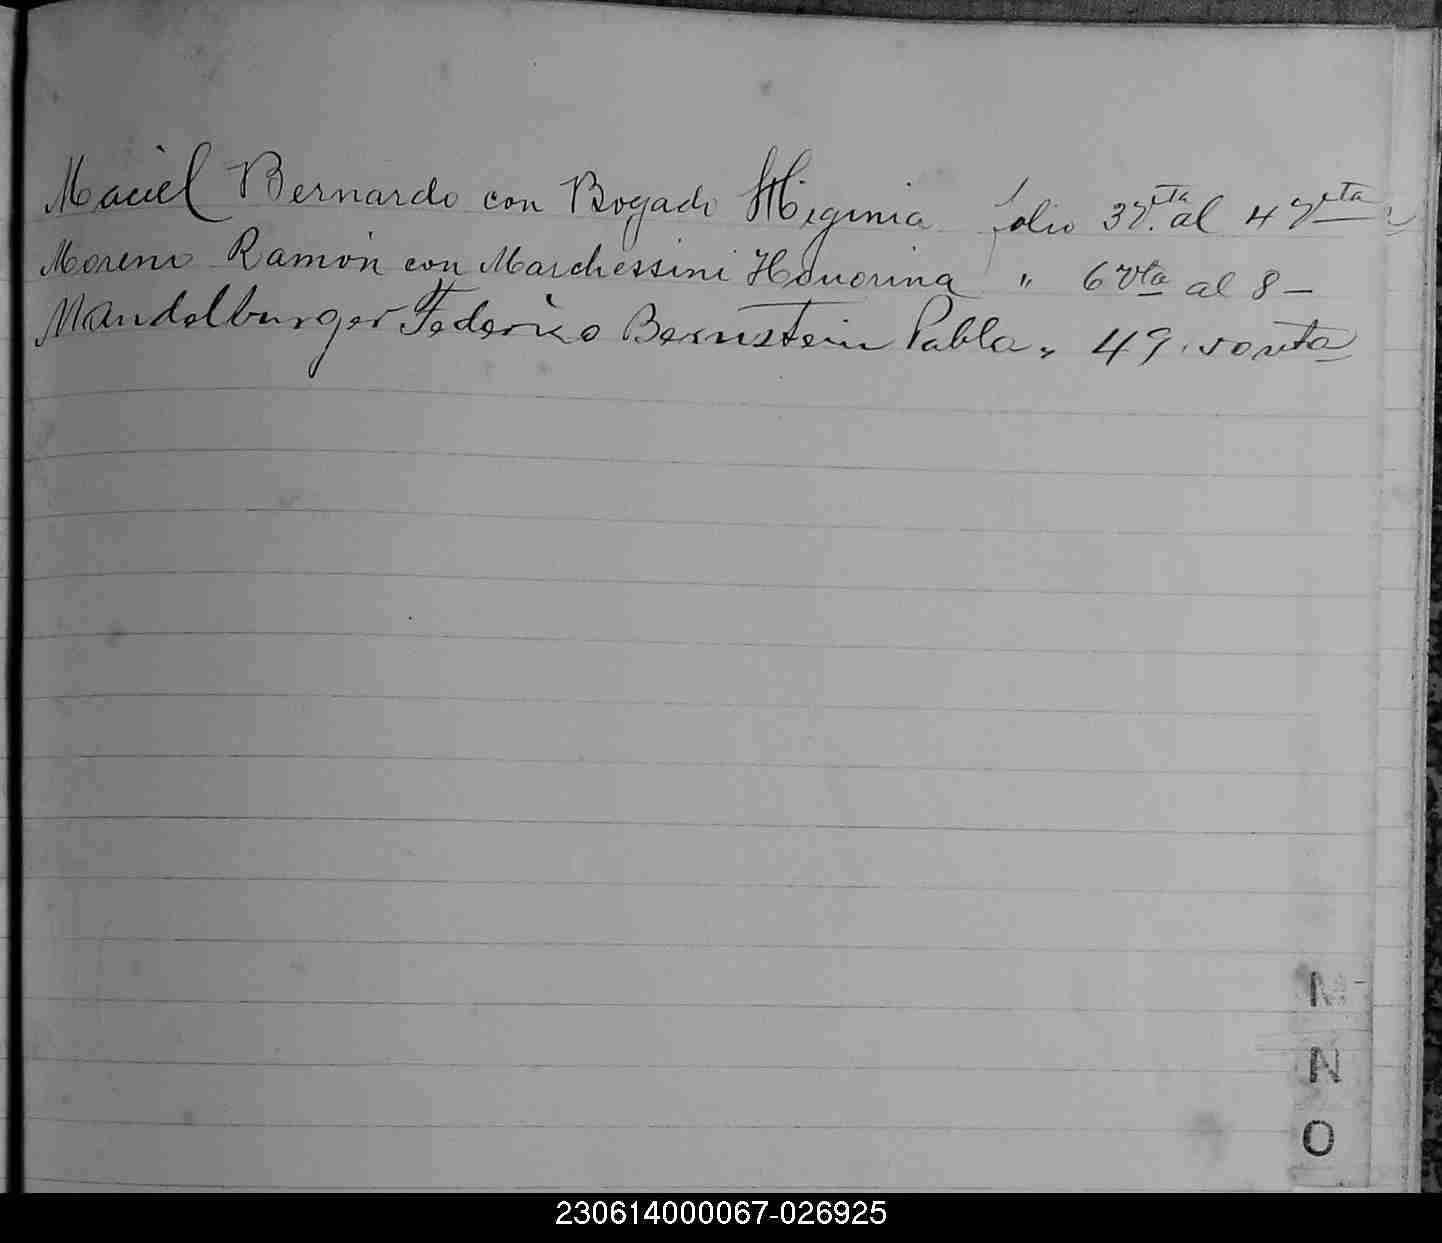 Maciel Bernardo con Bogado Higinia folio 3 vta al 4 vta
Moreno Ramón con Marchessini Honorina " 6 vta al 8 –
Mandelburger Federico Bernstein Pabla " 49. 50 vta
M
N
O
230614000067-026925